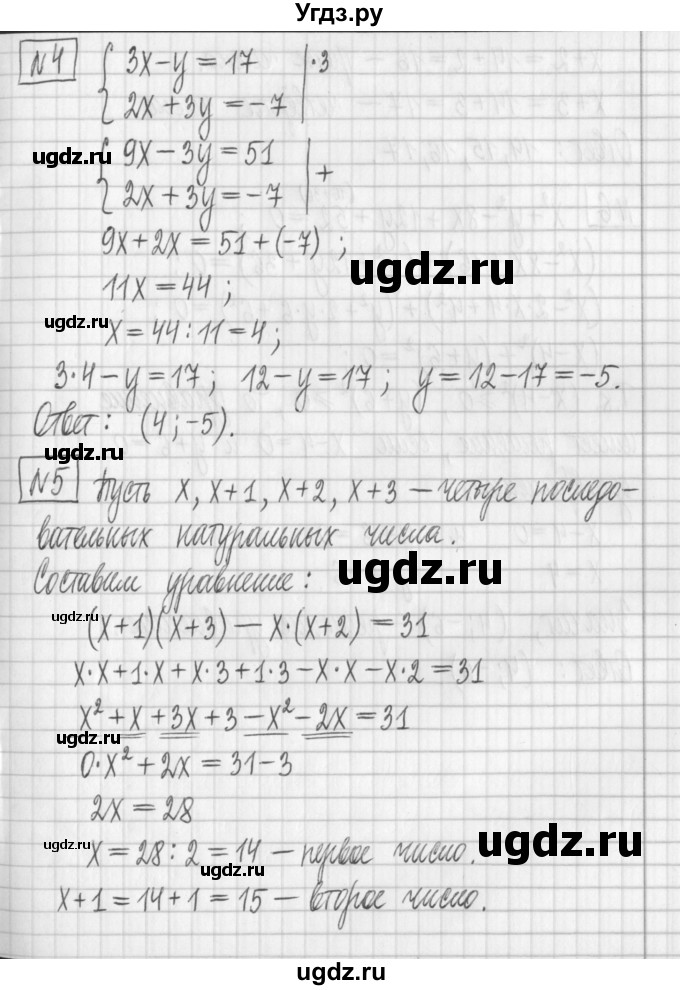 Угдз.ру
N4 { 3x-y=17 |·3
2x+3y=-7
ugdz.ru { 9x-3y=51 | +
2x+3y=-7
9x+2x=51+(-7) ;
ugdz.ru
11x=44 ;
ugdz.ru
x=44:11=4 ;
3·4-y=17 ; 12-y=17 ; y=12-17=-5.
Ответ: (4 ; -5). ugdz.ru
N5 Пусть x, x+1, x+2, x+3 – четыре последо-
вательных натуральных числа.
Составим уравнение: ugdz.ru
ugdz.ru
(x+1)(x+3) – x·(x+2) = 31
x·x+1·x+x·3+1·3-x·x-x·2=31
x²+x+3x+3-x²-2x=31
ugdz.ru
0·x²+2x=31-3
2x=28
ugdz.ru
ugdz.ru
x=28:2=14 – первое число.
x+1=14+1=15 – второе число.
ugdz.ru